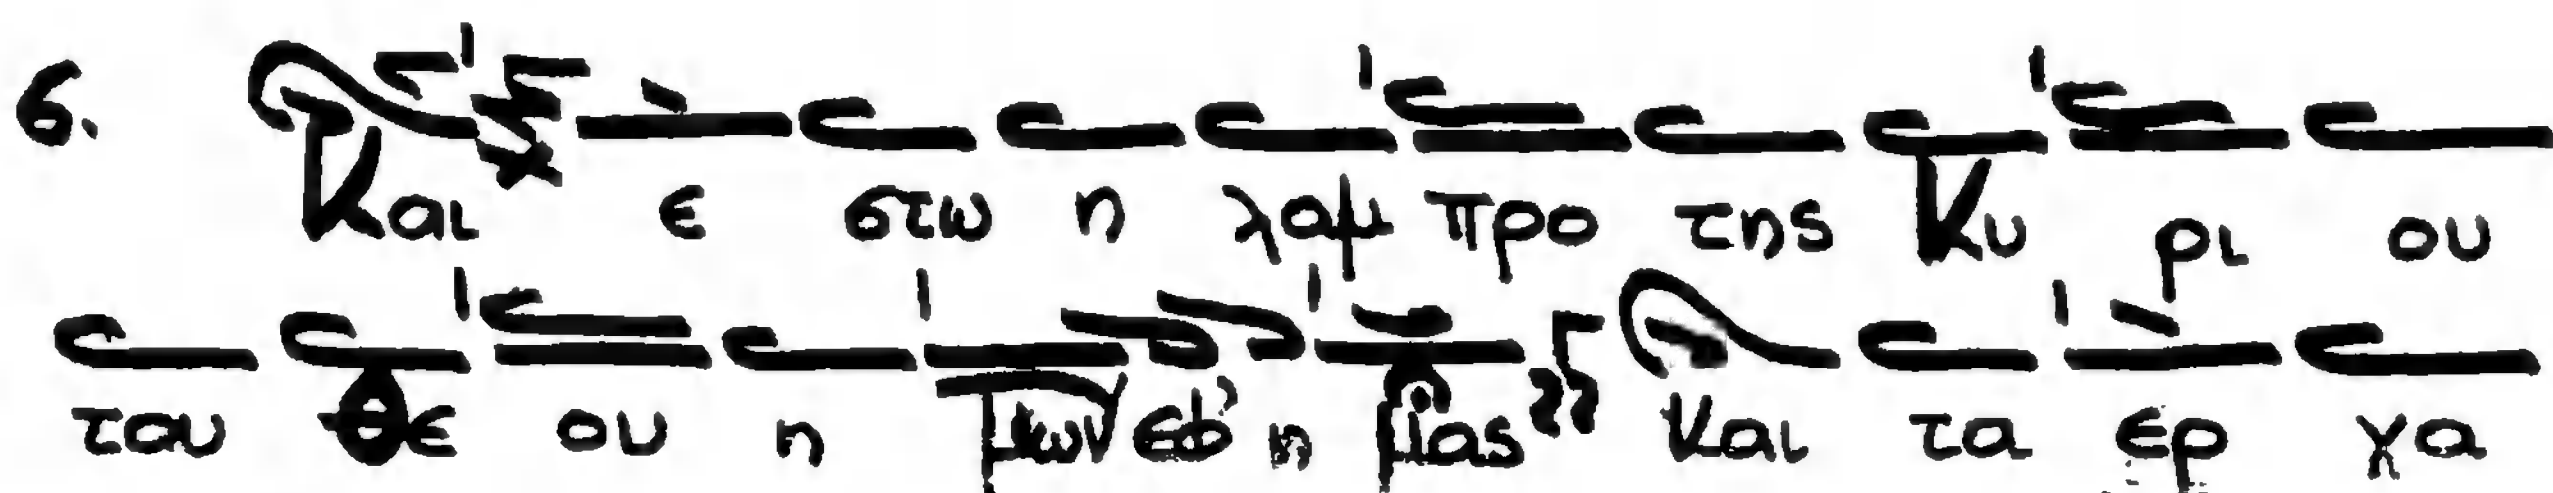 6. Και ε στω η λαμ προ της Κυ ρι ου
του Θε ου η μων εφ' η μας και τα ερ γα